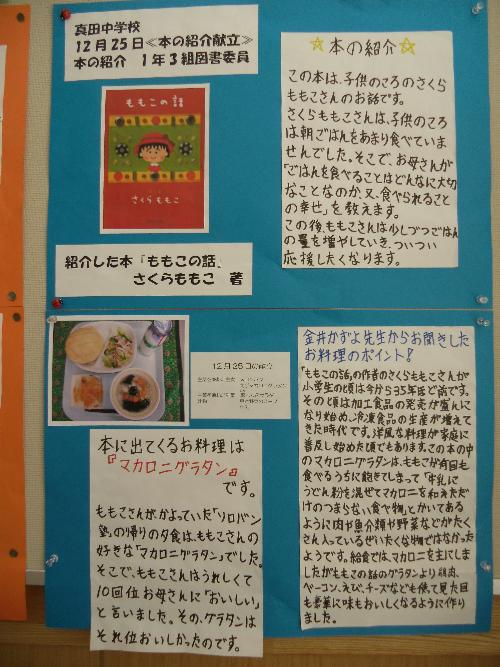 真田中学校
12月25日≪本の紹介献立≫
本の紹介 1年3組図書委員
ももこの話
さくらももこ
紹介した本「ももこの話」
さくらももこ 著
☆本の紹介☆
この本は、子供のころのさくら
ももこさんのお話です。
さくらももこさんは、子供のころ
は朝ごはんをあまり食べていま
せんでした。そこで、お母さんが
「ごはんを食べることはどんなに大切
なことなのか、又、食べられること
の幸せ」を教えます。
この後、ももこさんは少しづつごはん
の量を増やしていき、ついつい
応援したくなります。
12月25日の献立
本に出てくるお料理は
『マカロニグラタン』
です。
ももこさんが、かよっていた「ソロバン
塾」の帰りの夕食は、ももこさんの
好きな「マカロニグラタン」でした。
そこで、ももこさんはうれしくて
10回位お母さんに「おいしい」
と言いました。その、グラタンは
それ位おいしかったのです。
金井かずよ先生からお聞きした
お料理のポイント!
「ももこの話」の作者のさくらももこさんが
小学生の頃は今から35年ほど前です。
その頃は加工食品の発売が盛んに
なり始め、冷凍食品の生産が増えて
きた時代です。洋風な料理が家庭に
普及し始めた頃でもあります。この本の中
のマカロニグラタンは、ももこが何回も
食べるうちに飽きてしまって「牛乳に
うどん粉を混ぜてマカロニを和えただ
けのつまらない食べ物」とかいてある
ように肉や魚介類や野菜などがたく
さん入っているぜいたくな物ではなかった
ようです。給食では、マカロニを主にしま
したがももこの話のグラタンより鶏肉、
ベーコン、えび、チーズなども使って見た目
も豪華に味もおいしくなるように作り
ました。